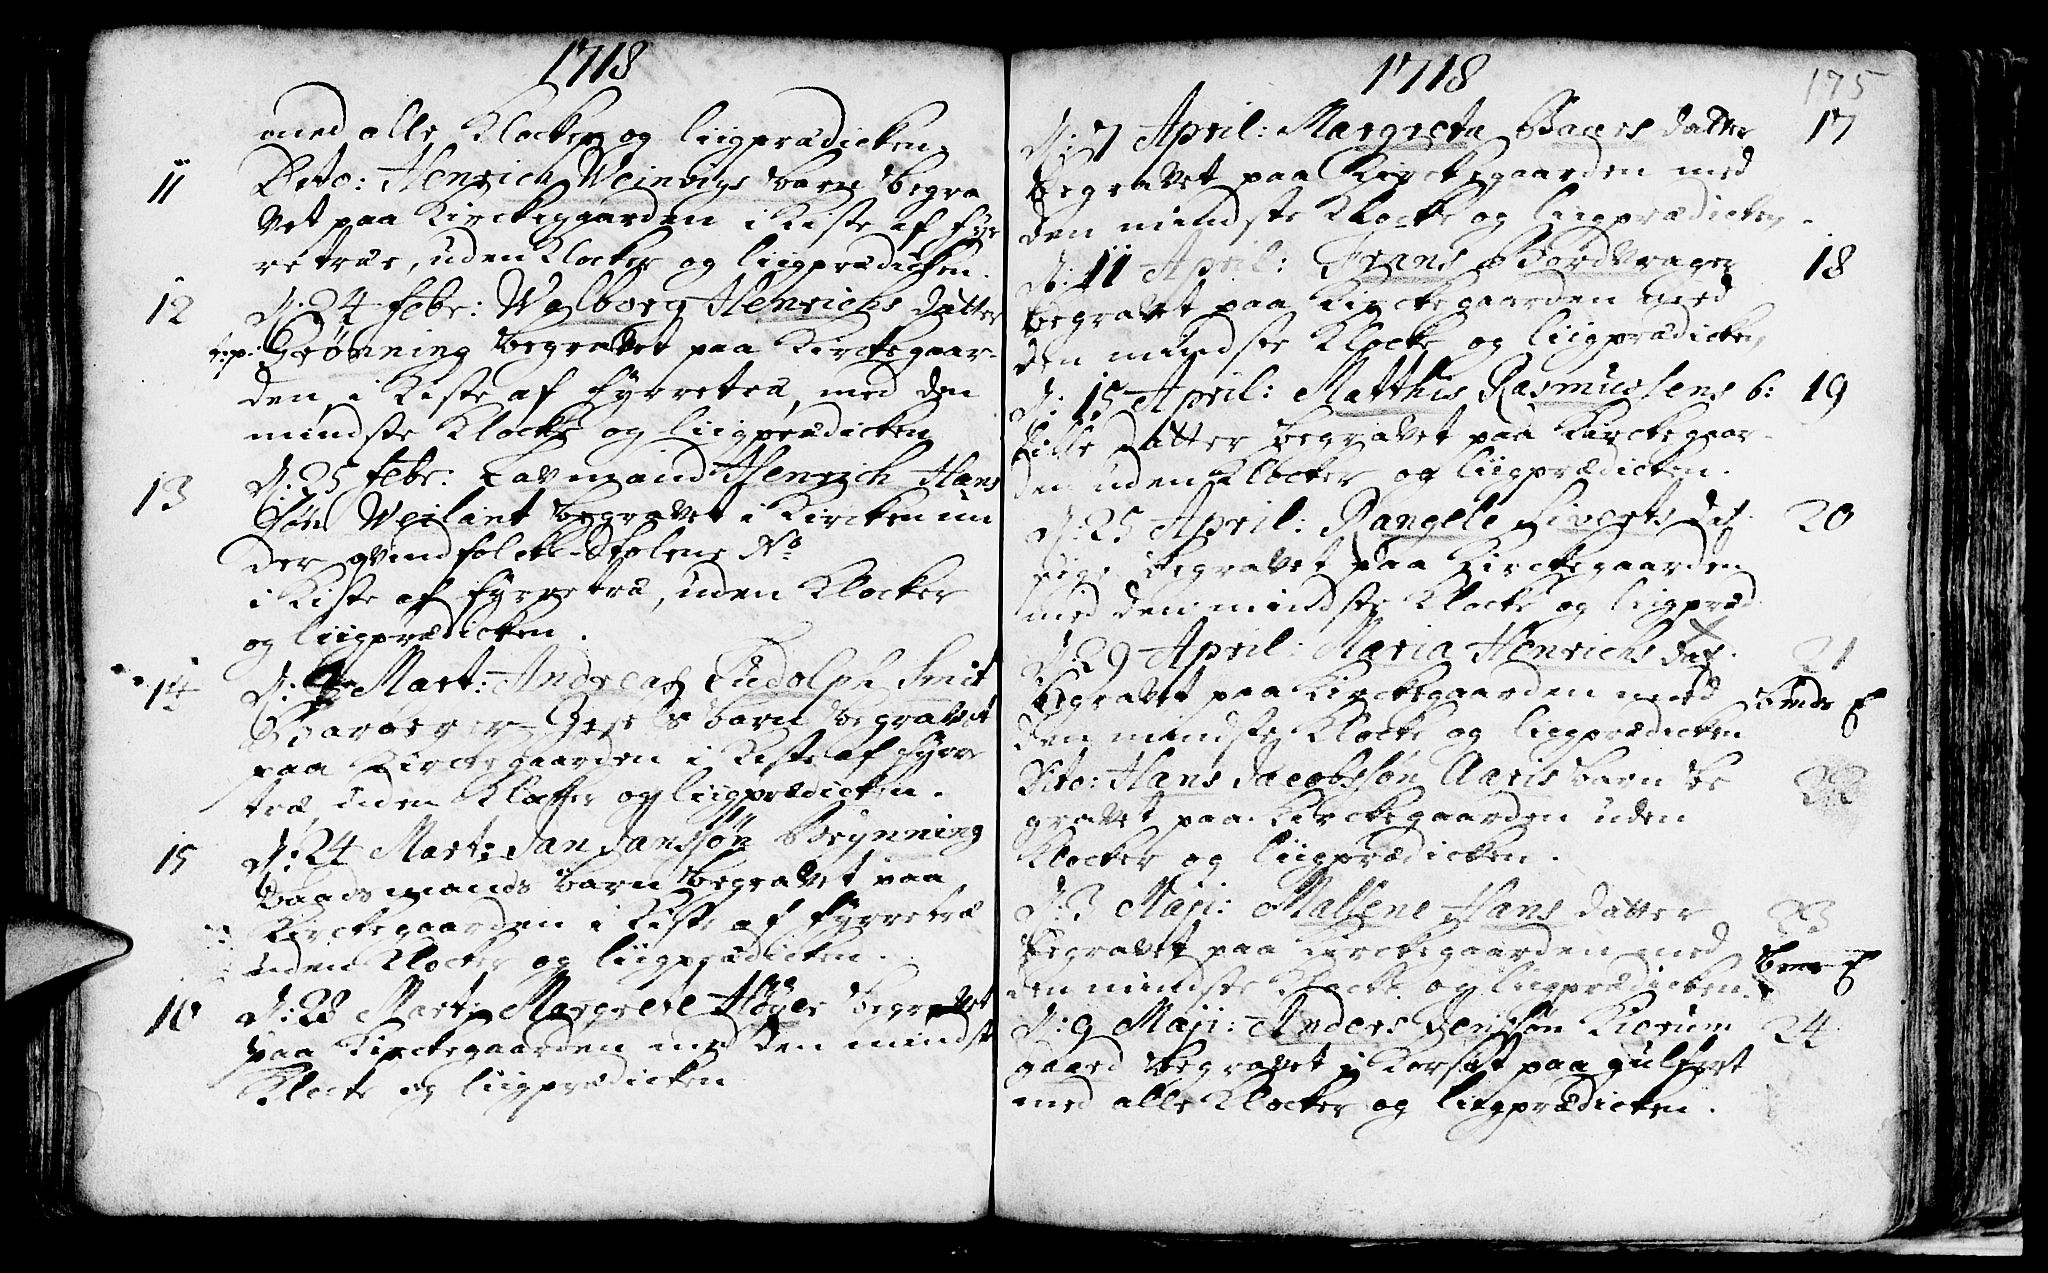 1718
med alle Klocker og liigprædicken.
11 Dito: Henrich Weinvigs barn begra
vet paa Kirckegaarden i Kiste af fyr
retræ, uden Klocker og liigprædicken.
12 D: 24 Febr: Walborg Henrichs datter
Grönning begravet paa Kirckegaar-
den, i Kiste af fyrretræ, med den
mindste Klocke og liigprædicken
13 D: 25 Febr: Lavmand Henrich Hans
Søn Weilant begravet i Kircken un
der qvindfolcke-Stolene No
i Kiste af fyrretræ, uden Klocker
og liigprædicken.
14 D: Mart: Andreas Ludolph Smit
Barberer-Gesels barn begravet
paa Kirckegaarden i Kiste af fyrre
træ, uden Klocker og liigprædicken.
15 D: 24 Mart: Jan Janssøn Brynning
Baadsmands barn begravet paa
Kirckegaarden i Kiste af fyrretræ
uden Klocker og liigprædicken.
16 D: 28 Mart: Margrete Höyer begravet
paa Kirckegaarden med den mindste
Klocke og liigprædicken
1718
175
D: 7 April: Margreta Baars datter 17
begravet paa Kirckegaarden med
den mindste Klocke og liigprædicken.
D: 11 April: Frans Bordvrager 18
begravet paa Kirckegaarden med
den mindste Klocke og liigprædicken,
D: 15 April: Matthis Rasmussens 6: 19
lille datter begravet paa Kirckegaar-
den uden Klocker og liigprædicken.
D: 25 April: Rangele Siverts dat. 20
begravet paa Kirckegaarden
med den mindste Klocke og ligpræd
D: 29 April: Maria Henrichs dat. 21
begravet paa Kirckegaarden med
den mindste Klocke og liigprædicken
Dito: Hans Jacobssøn Aaris barn be 22
gravet paa Kirckegaarden uden
Klocker og liigprædicken.
D: 3 Maji: Mallene Hans datter 23
begravet paa Kirckegaarden med
den mindste Klocke og liigprædicken.
D: 9 Maji: Anders Jenssøn Kierum 24
gaard begravet i Korset paa gulfvet
med alle Klocker og liigprædicken.